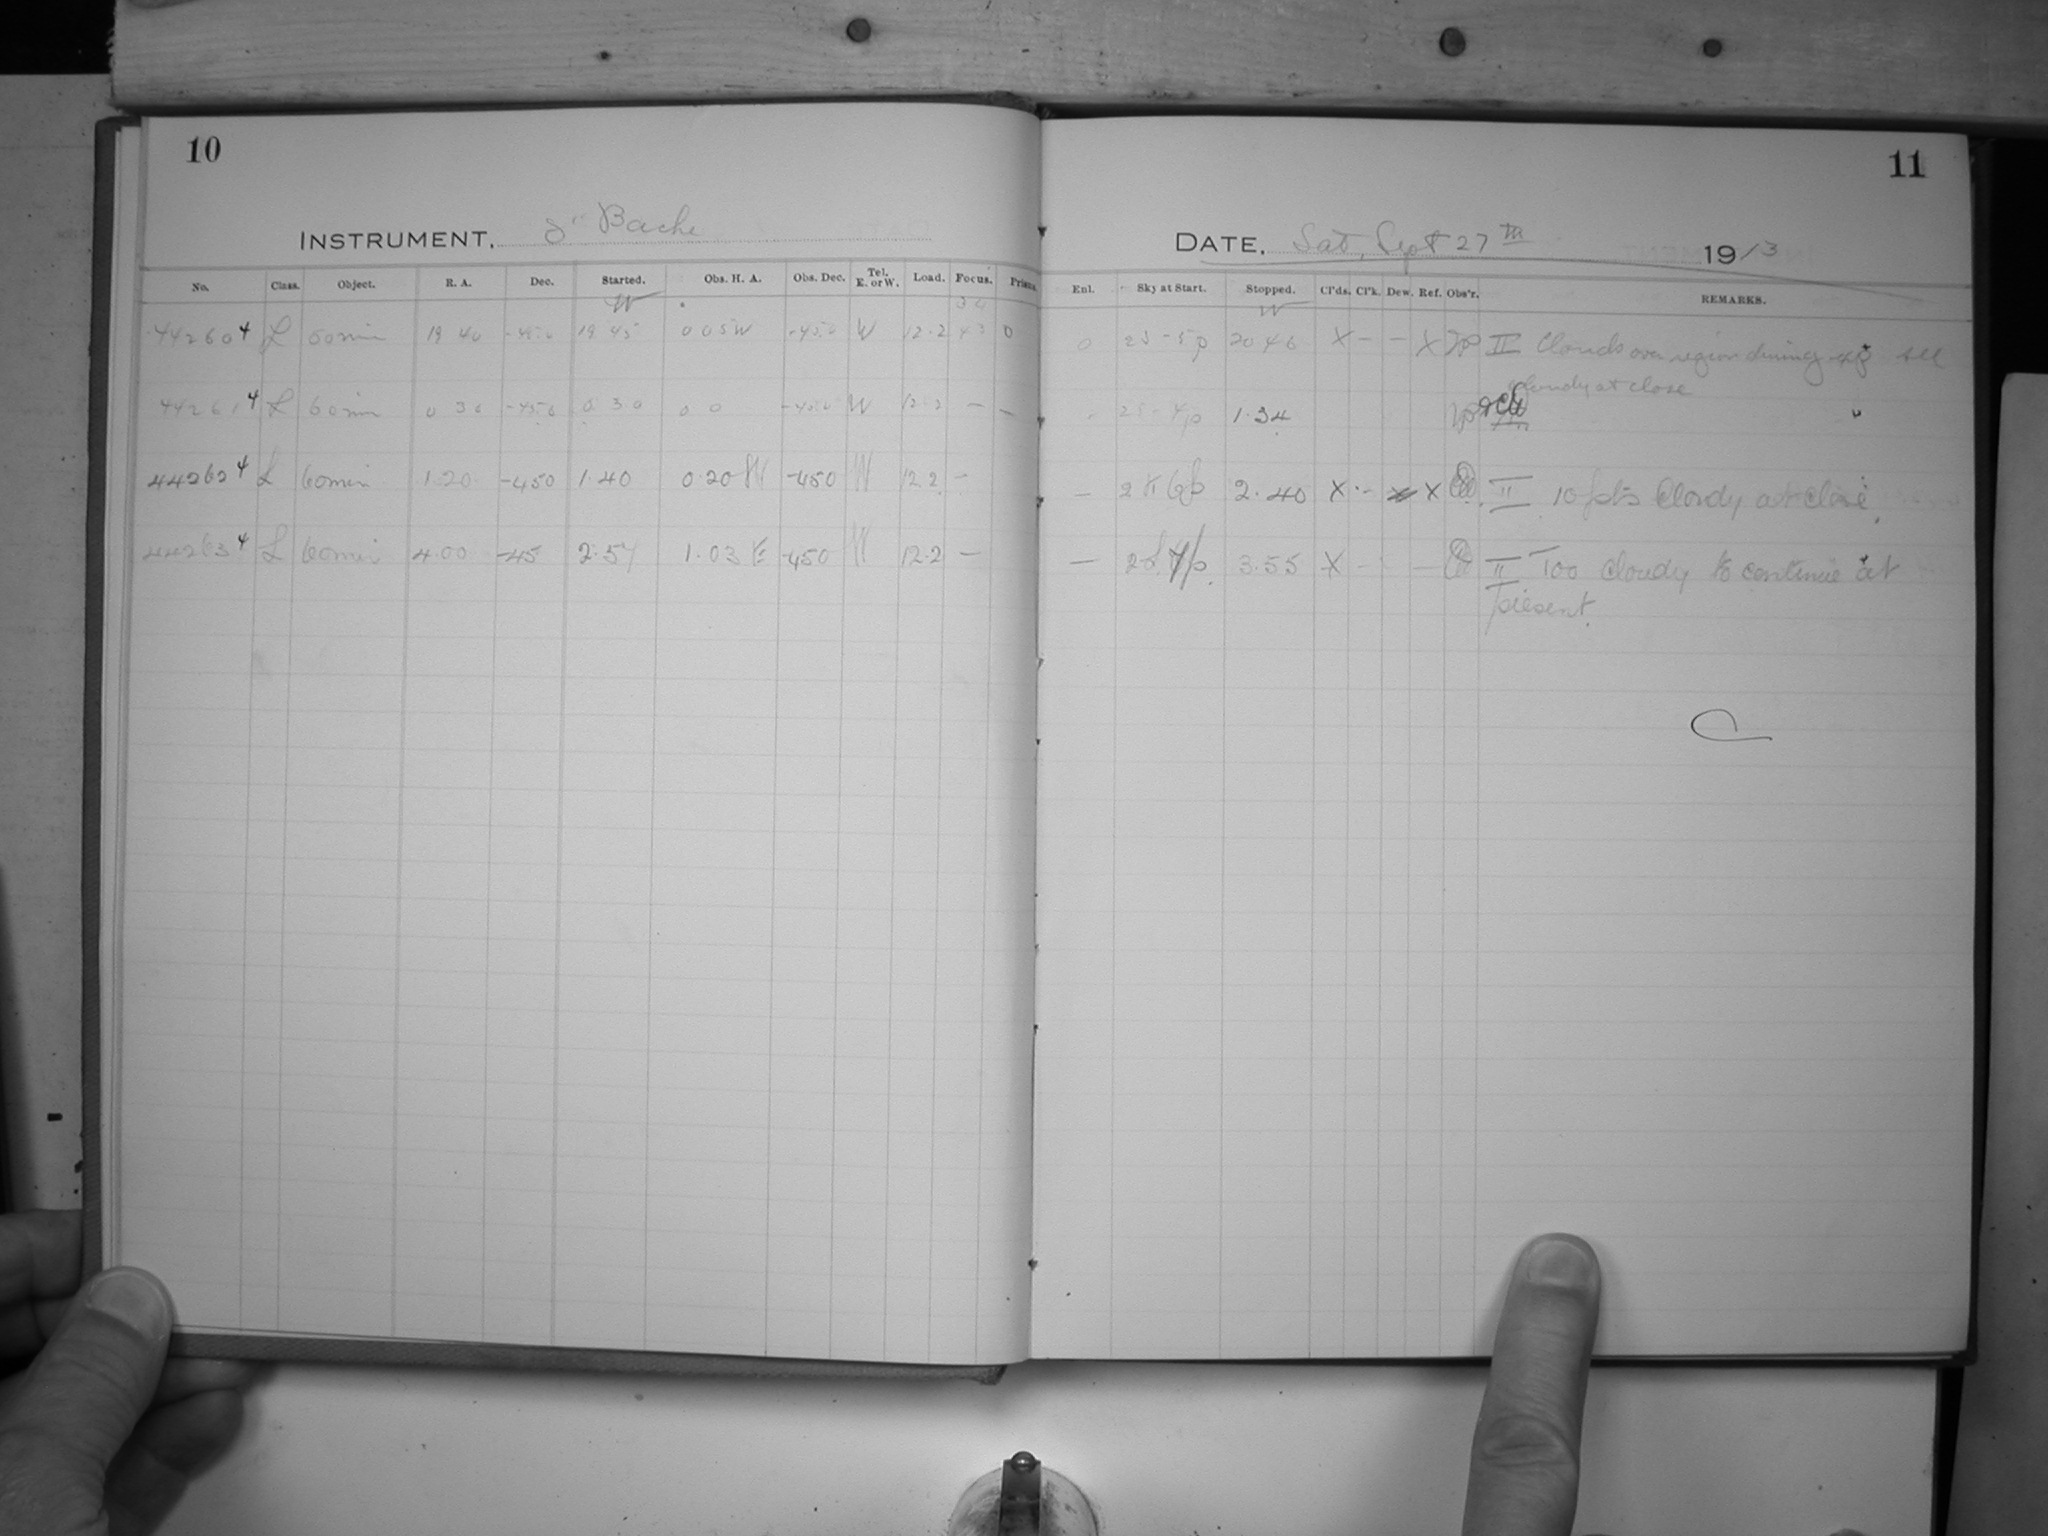 10
INSTRUMENT, 8" Bache
No. Class. Object. R. A. Dec. Started. Obs. H. A. Obs. Dec. Tel. E. or W. Load. Focus. Prism.
W
44260 4 L 60 min 19 40 -45.0 19 45 0 05 W -45.0 W 12.2 43 0
44261 4 L 60 min 0 30 -45.0 0 30 0 0 -45.0 W 12.2 — —
44262 4 L 60 min 1.20 -450 1.40 0.20 W -450 W 12.2 -
44263 4 L 60 min 4.00 -45 2.57 1.03 E -450 W 12.2 —
11
DATE, Sat, Sept 27th 1913
Enl. Sky at Start. Stopped. Cl'ds. Cl'k. Dew. Ref. Obs'r. REMARKS.
W
0 2S - 5p 20 46 X - - X II Clouds over region during exp
cloudy at close
- 2S - 4p 1.34
- 2 6p 2.40 X - X II 10 pts Cloudy at close.
— 2S 7p. 3.55 X - - II Too Cloudy to continue at
present.